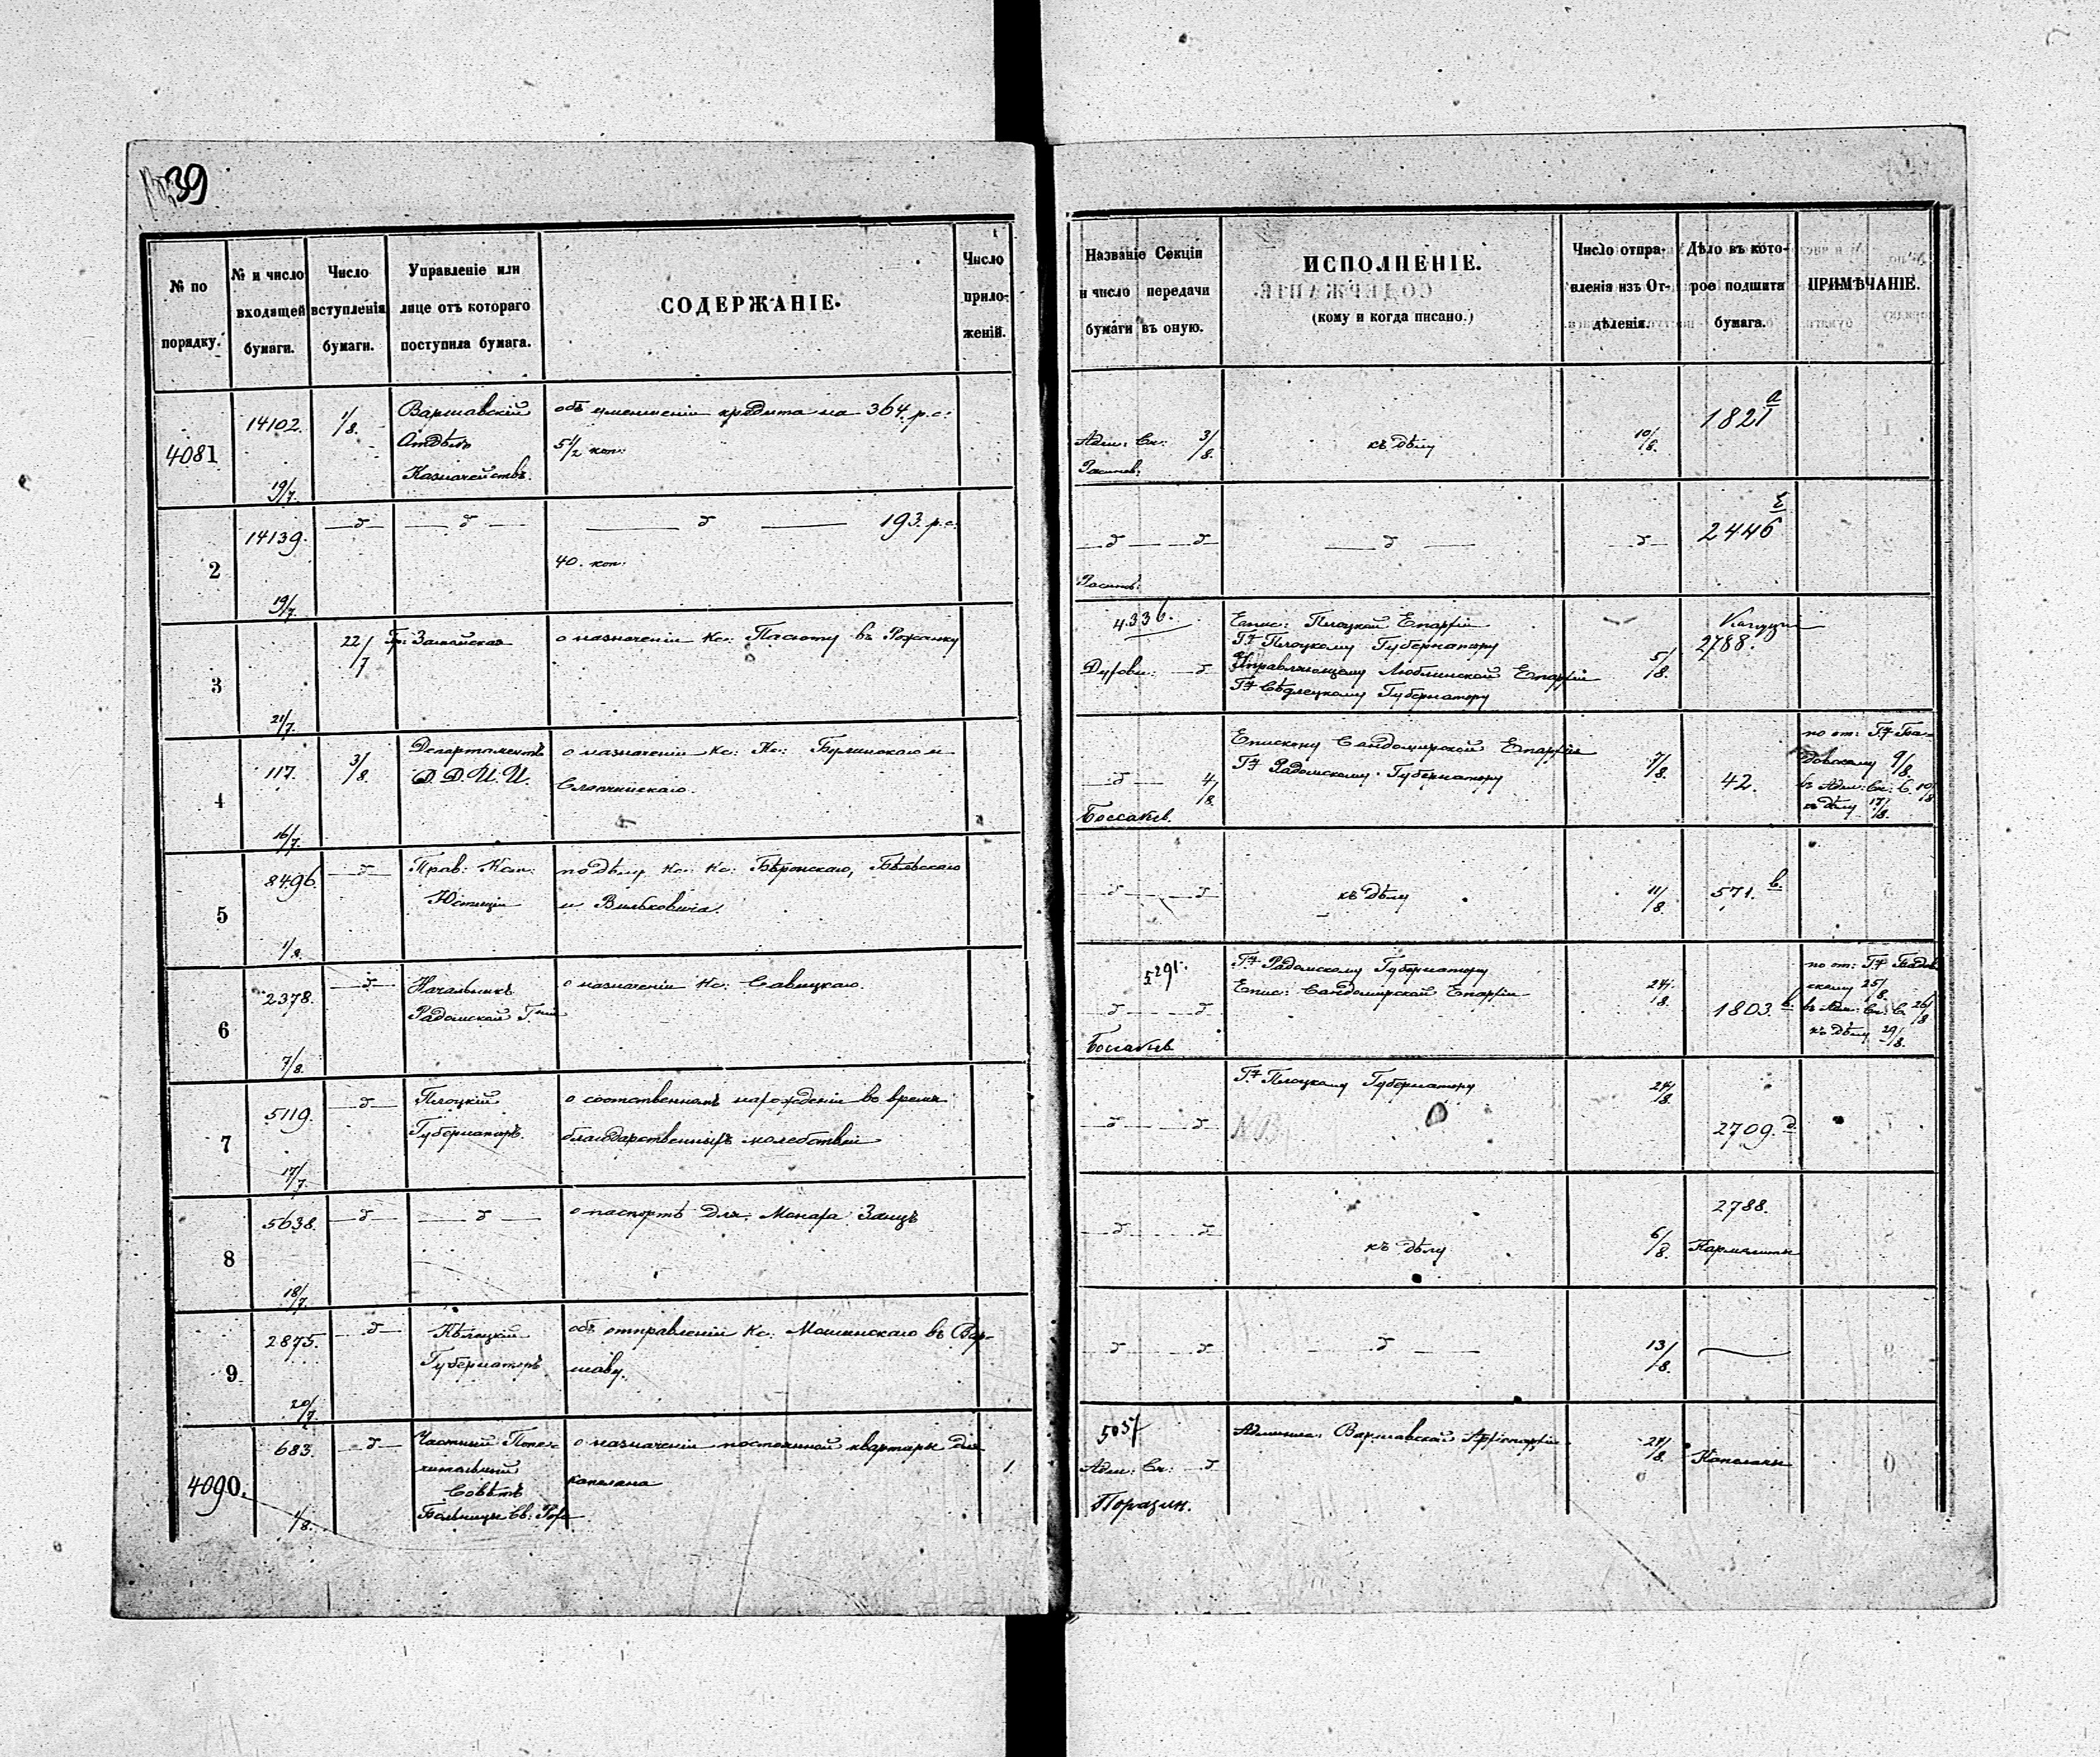 39
№ по порядку.
№ и число входящей бумаги.
Число вступленія бумаги.
Управленіе или лице отъ котораго поступила бумага.
СОДЕРЖАНІЕ.
Число прило-женій.
Названіе Секціи и число передачи бумаги въ оную.
ИСПОЛНЕНІЕ.
(кому и когда писано.)
Число отпра-вленія изъ От-дѣленія.
Дѣло въ кото-рое подшита бумага.
ПРИМѢЧАНІЕ.
4081
14102.
19/7.
1/8.
Варшавскій
Отдѣлъ
Казначействъ.
объ уменшеніи кредита на 364. р. с.
5 1/2 коп:
Адм: Ск: 3/8.
къ дѣлу
10/8.
1821 а
2
14139.
19/7.
193. р. с.
40. коп.
2446
3
21/7.
22/7
Гр: Замойская
о назначеніи Кс:
4336.
Епис: Плоцкой Епархіи
Гну Плоцкому Губернатору
Управляющему Люблинской Епархіи
Гну Сѣдлецкому Губернатору
5/8.
2788.
4
117.
16/7.
3/8.
Департаментъ
Д. Д. И. И.
о назначеніи Кс: Кс:
4/8
Епископу Сандомирской Епархіи
Гну Радомскому Губернатору
7/8.
42.
по от: Гну
9/8.
въ Адм: Ск: С. 10/8
къ дѣлу 17/8.
5
8496.
1/8.
Прав: Ком:
Юстиціи
по дѣлу Кс: Кс:
и Вильковича.
къ дѣлу
11/8.
571. в.
6
2378.
7/8.
Начальникъ
Радомской Гніи
о назначеніи Кс: Савицкаго.
5291.
Гну Радомскому Губернатору
Епис: Сандомирской Епархіи
24/8.
1803. в.
по от: Гну
скому 25/8.
въ Адм: Ск: С. 26/8
къ дѣлу 29/8.
7
5119.
17/7.
Плоцкій
Губернаторъ.
во время
благодарственныхъ молебствій
Гну Плоцкому Губернатору
NB
24/8.
2709. д.
8
5638.
18/7.
о паспортѣ для Монаха Заицъ
къ дѣлу
6/8.
2788.
Кармелиты
9
2875.
20/7.
Кѣлецкій
Губернаторъ
объ отправленіи Кс: Мошинскаго въ Вар-
шаву.
13/8.
4090.
683.
1/8.
Частный Попе-
чительный
Совѣтъ
Больницы Св: Роха
о назначеніи постоянной квартиры для
капелана
1
5037
Адм: Ск:
Админис: Варшавской Архіепархіи
24/8.
Капеланы